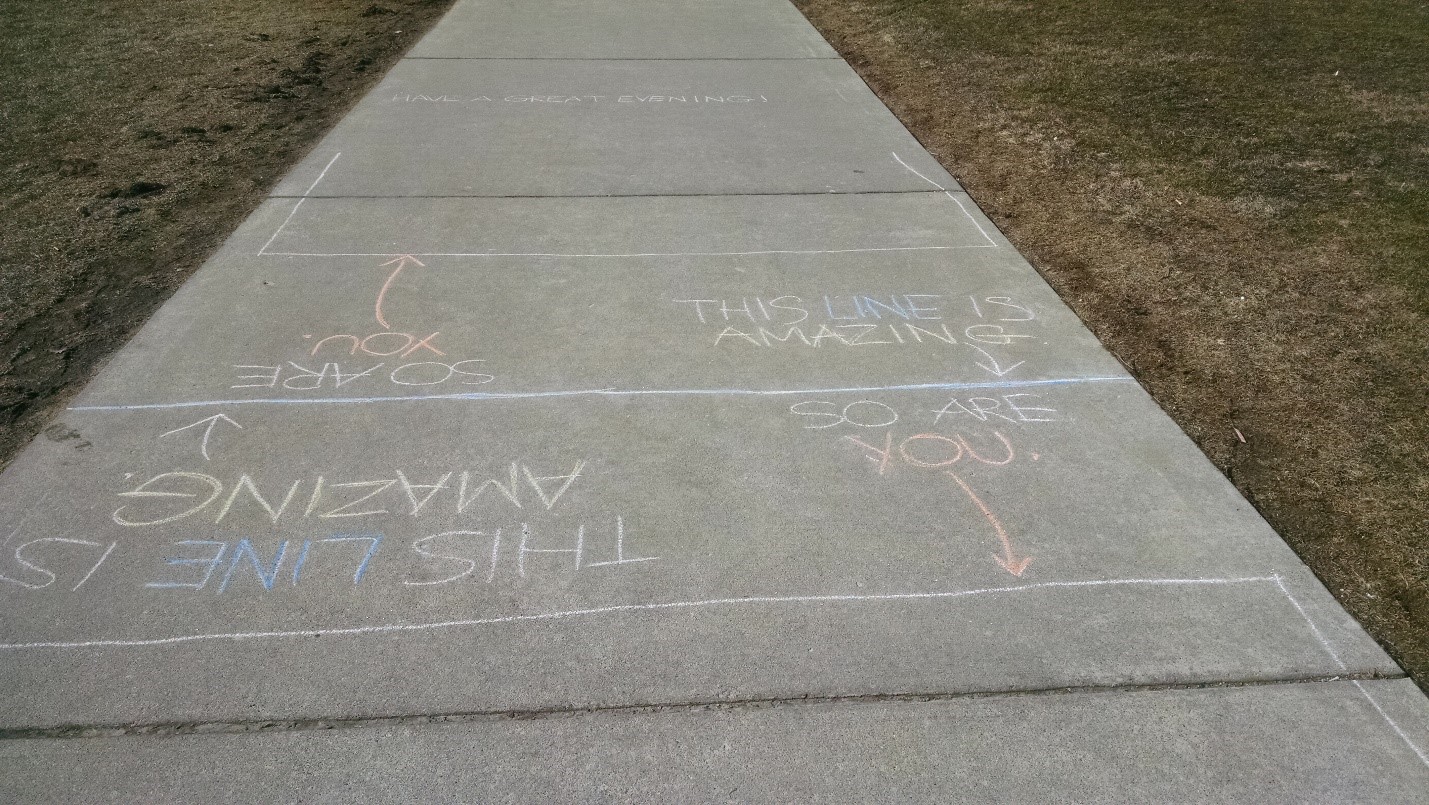 HAVE A GREAT EVENING!
THIS LINE IS
AMAZING.
SO ARE
YOU.
THIS LINE IS
AMAZING.
SO ARE
YOU.